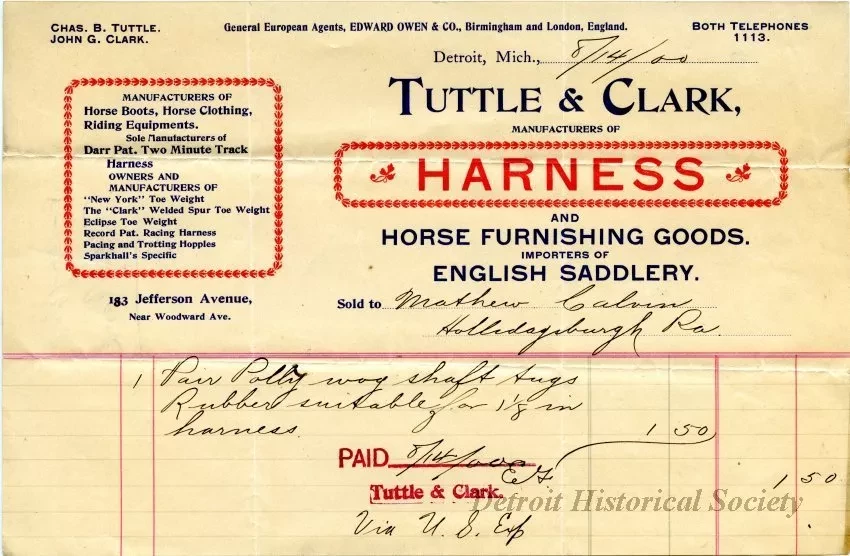 CHAS. B. TUTTLE.
JOHN G. CLARK.
General European Agents, EDWARD OWEN & CO., Birmingham and London, England.
BOTH TELEPHONES
1113.
Detroit, Mich., 8/14/00
TUTTLE & CLARK,
MANUFACTURERS OF
HARNESS
AND
HORSE FURNISHING GOODS.
IMPORTERS OF
ENGLISH SADDLERY.
MANUFACTURERS OF
Horse Boots, Horse Clothing,
Riding Equipments.
Sole Manufacturers of
Darr Pat. Two Minute Track
Harness
OWNERS AND
MANUFACTURERS OF
"New York" Toe Weight
The "Clark" Welded Spur Toe Weight
Eclipse Toe Weight
Record Pat. Racing Harness
Pacing and Trotting Hopples
Sparkhall's Specific
183 Jefferson Avenue,
Near Woodward Ave.
Sold to Mathew Calvin
Hollidaysburgh Pa.
1 Pair Polly wog shaft tugs
Rubber suitable for 1 1/8 in
harness 1 50
PAID 8/14/00
Tuttle & Clark. 1 50
Detroit Historical Society
Via U. S. Exp